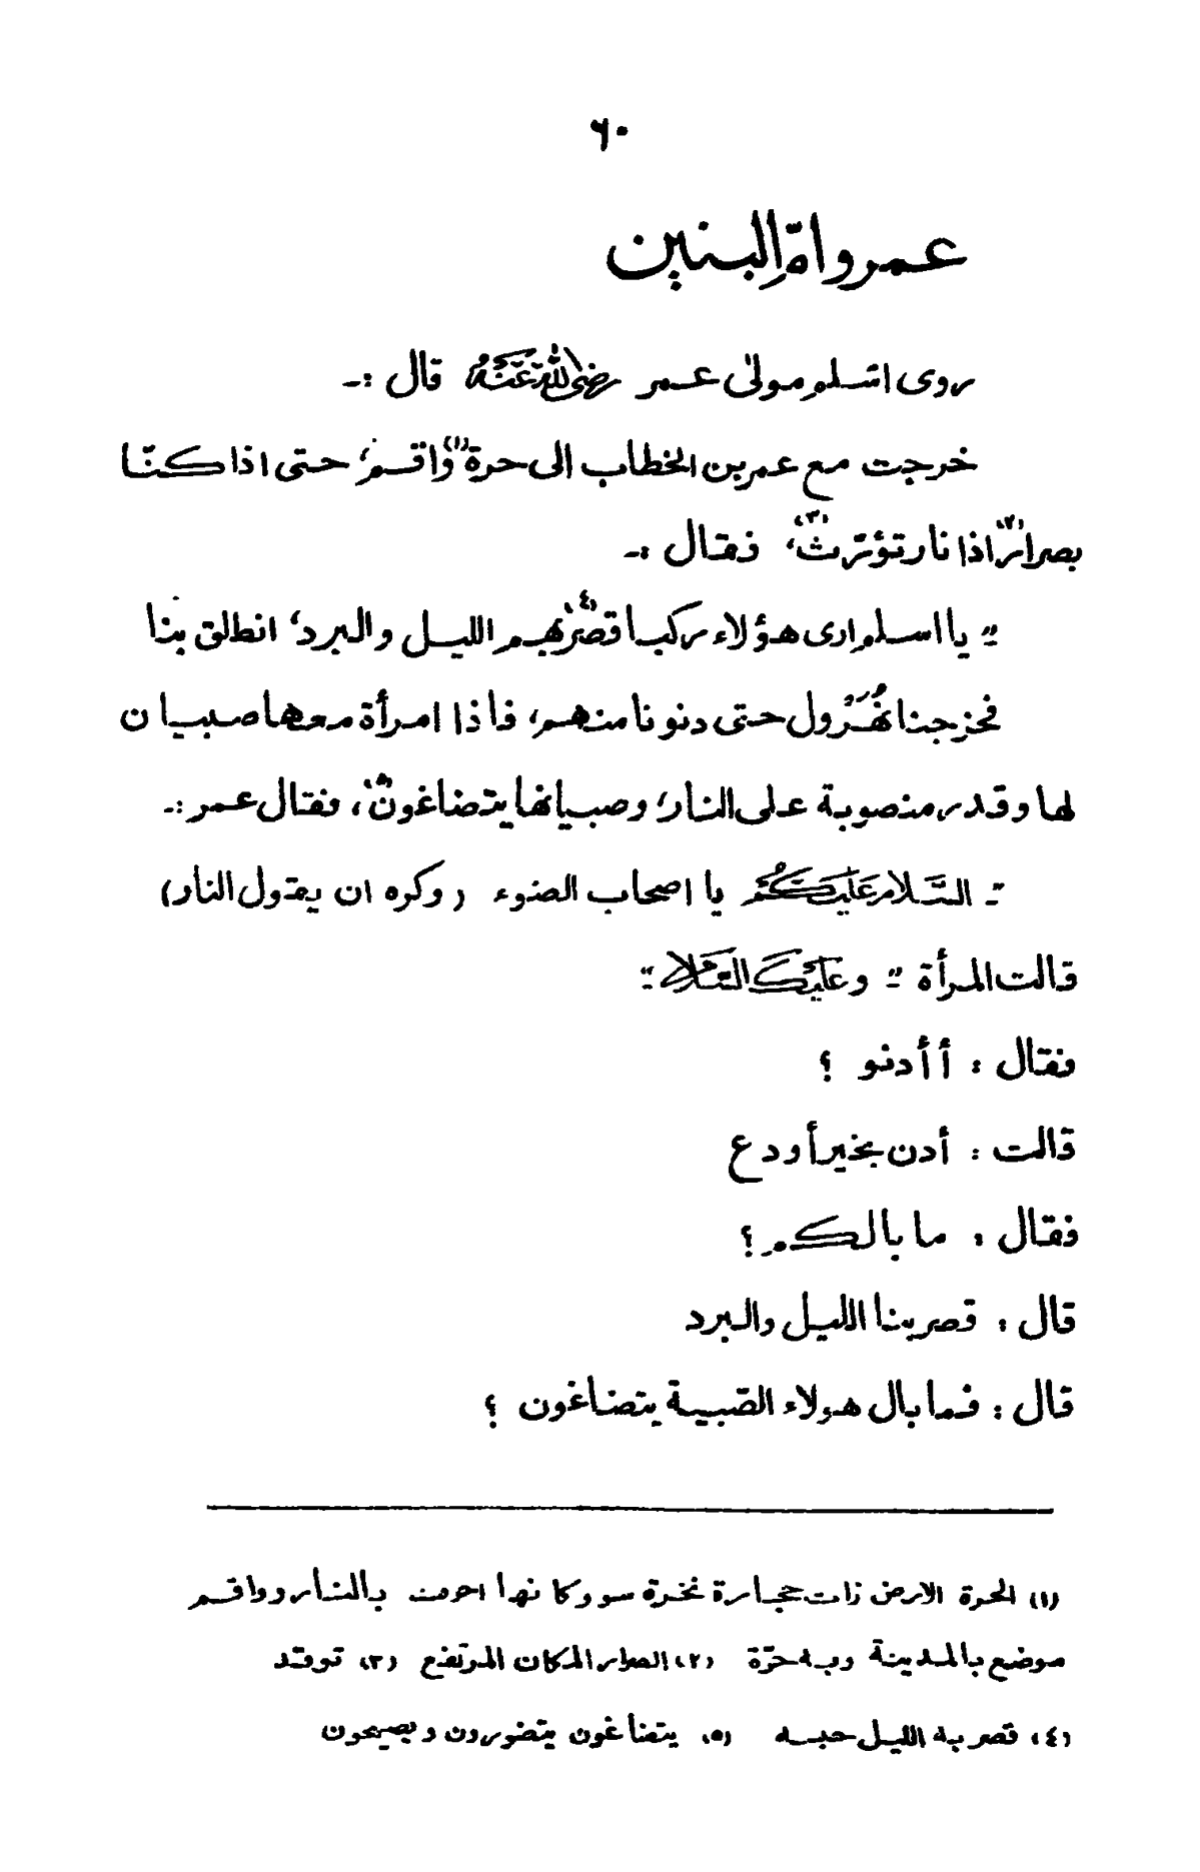 ٦٠
عمر وامّ البنين
روى اسلم مولى عمر رضي الله عنه قال :-
خرجت مع عمر بن الخطاب الى حرة (١) واقم، حتى اذا كنّا
بصرار (٢) اذا نار تؤرّث (٣)، فقال :-
- يا اسلم ارى هؤلاء ركبا قصر (٤) بهم الليل والبرد، انطلق بنا
فخرجنا نُهَرْول حتى دنونا منهم، فاذا امرأة معها صبيان
لها وقدر منصوبة على النار، وصبيانها يتضاغون (٥)، فقال عمر :-
- السَّلام عَلَيكُم يا اصحاب الضوء (وكره ان يقول النار)
قالت المرأة :- وعليك السلام :-
فقال : أأدنو ؟
قالت : أدن بخير أودع
فقال : ما بالكم ؟
قال : قصر بنا الليل والبرد
قال : فما بال هولاء الصّبية يتضاغون ؟
(١) الحرة الارض زات حجارة نخرة سوو كانها احرمت بالنار وواقم
موضع بالمدينة وبه حرّة (٢) الصرار المكان المرتفع (٣) توقد
(٤) قصر به الليل حبسه (٥) يتضاغون يتضورون ويصيحون